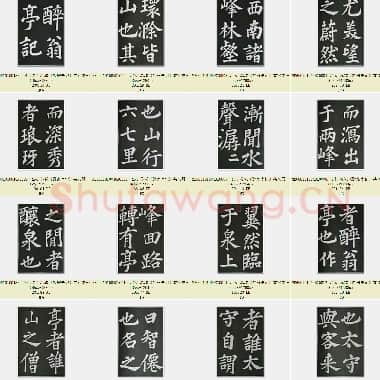 醉翁
亭記
環滁皆
山也其
西南諸
峰林壑
尤美望
之蔚然
而深秀
者琅玡
也山行
六七里
漸聞水
聲潺〻
而瀉出
于兩峰
之閒者
釀泉也
峰回路
轉有亭
翼然臨
于泉上
者醉翁
亭也作
亭者誰
山之僧
曰智僊
也名之
者誰太
守自謂
也太守
與客来
Shufawang.CN